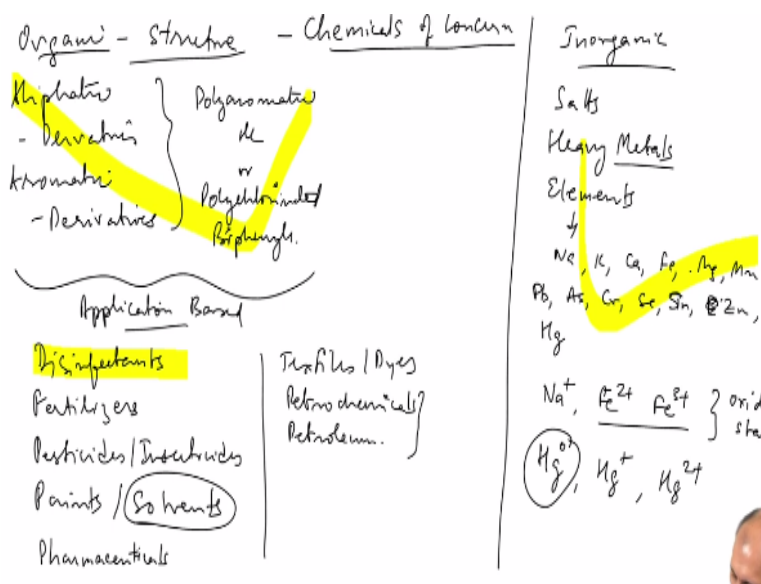 Organi - Structure - Chemicals of Concern
Aliphatic
- Derivatives
Aromatic
- Derivatives
Polyaromatic
HC
or
Polychlorinated
Biphenyls.
Application Based
Disinfectants
Fertilizers
Pesticides/Insecticides
Paints / Solvents
Pharmaceuticals
Textiles / Dyes
Petrochemicals
Petroleum.
Inorganic
Salts
Heavy Metals
Elements
Na, K, Ca, Fe, Mg, Mn
Pb, As, Cr, Se, Sn, Zn,
Hg
Na⁺, Fe²⁺ Fe³⁺ } oxid
sta
Hg⁰, Hg⁺, Hg²⁺